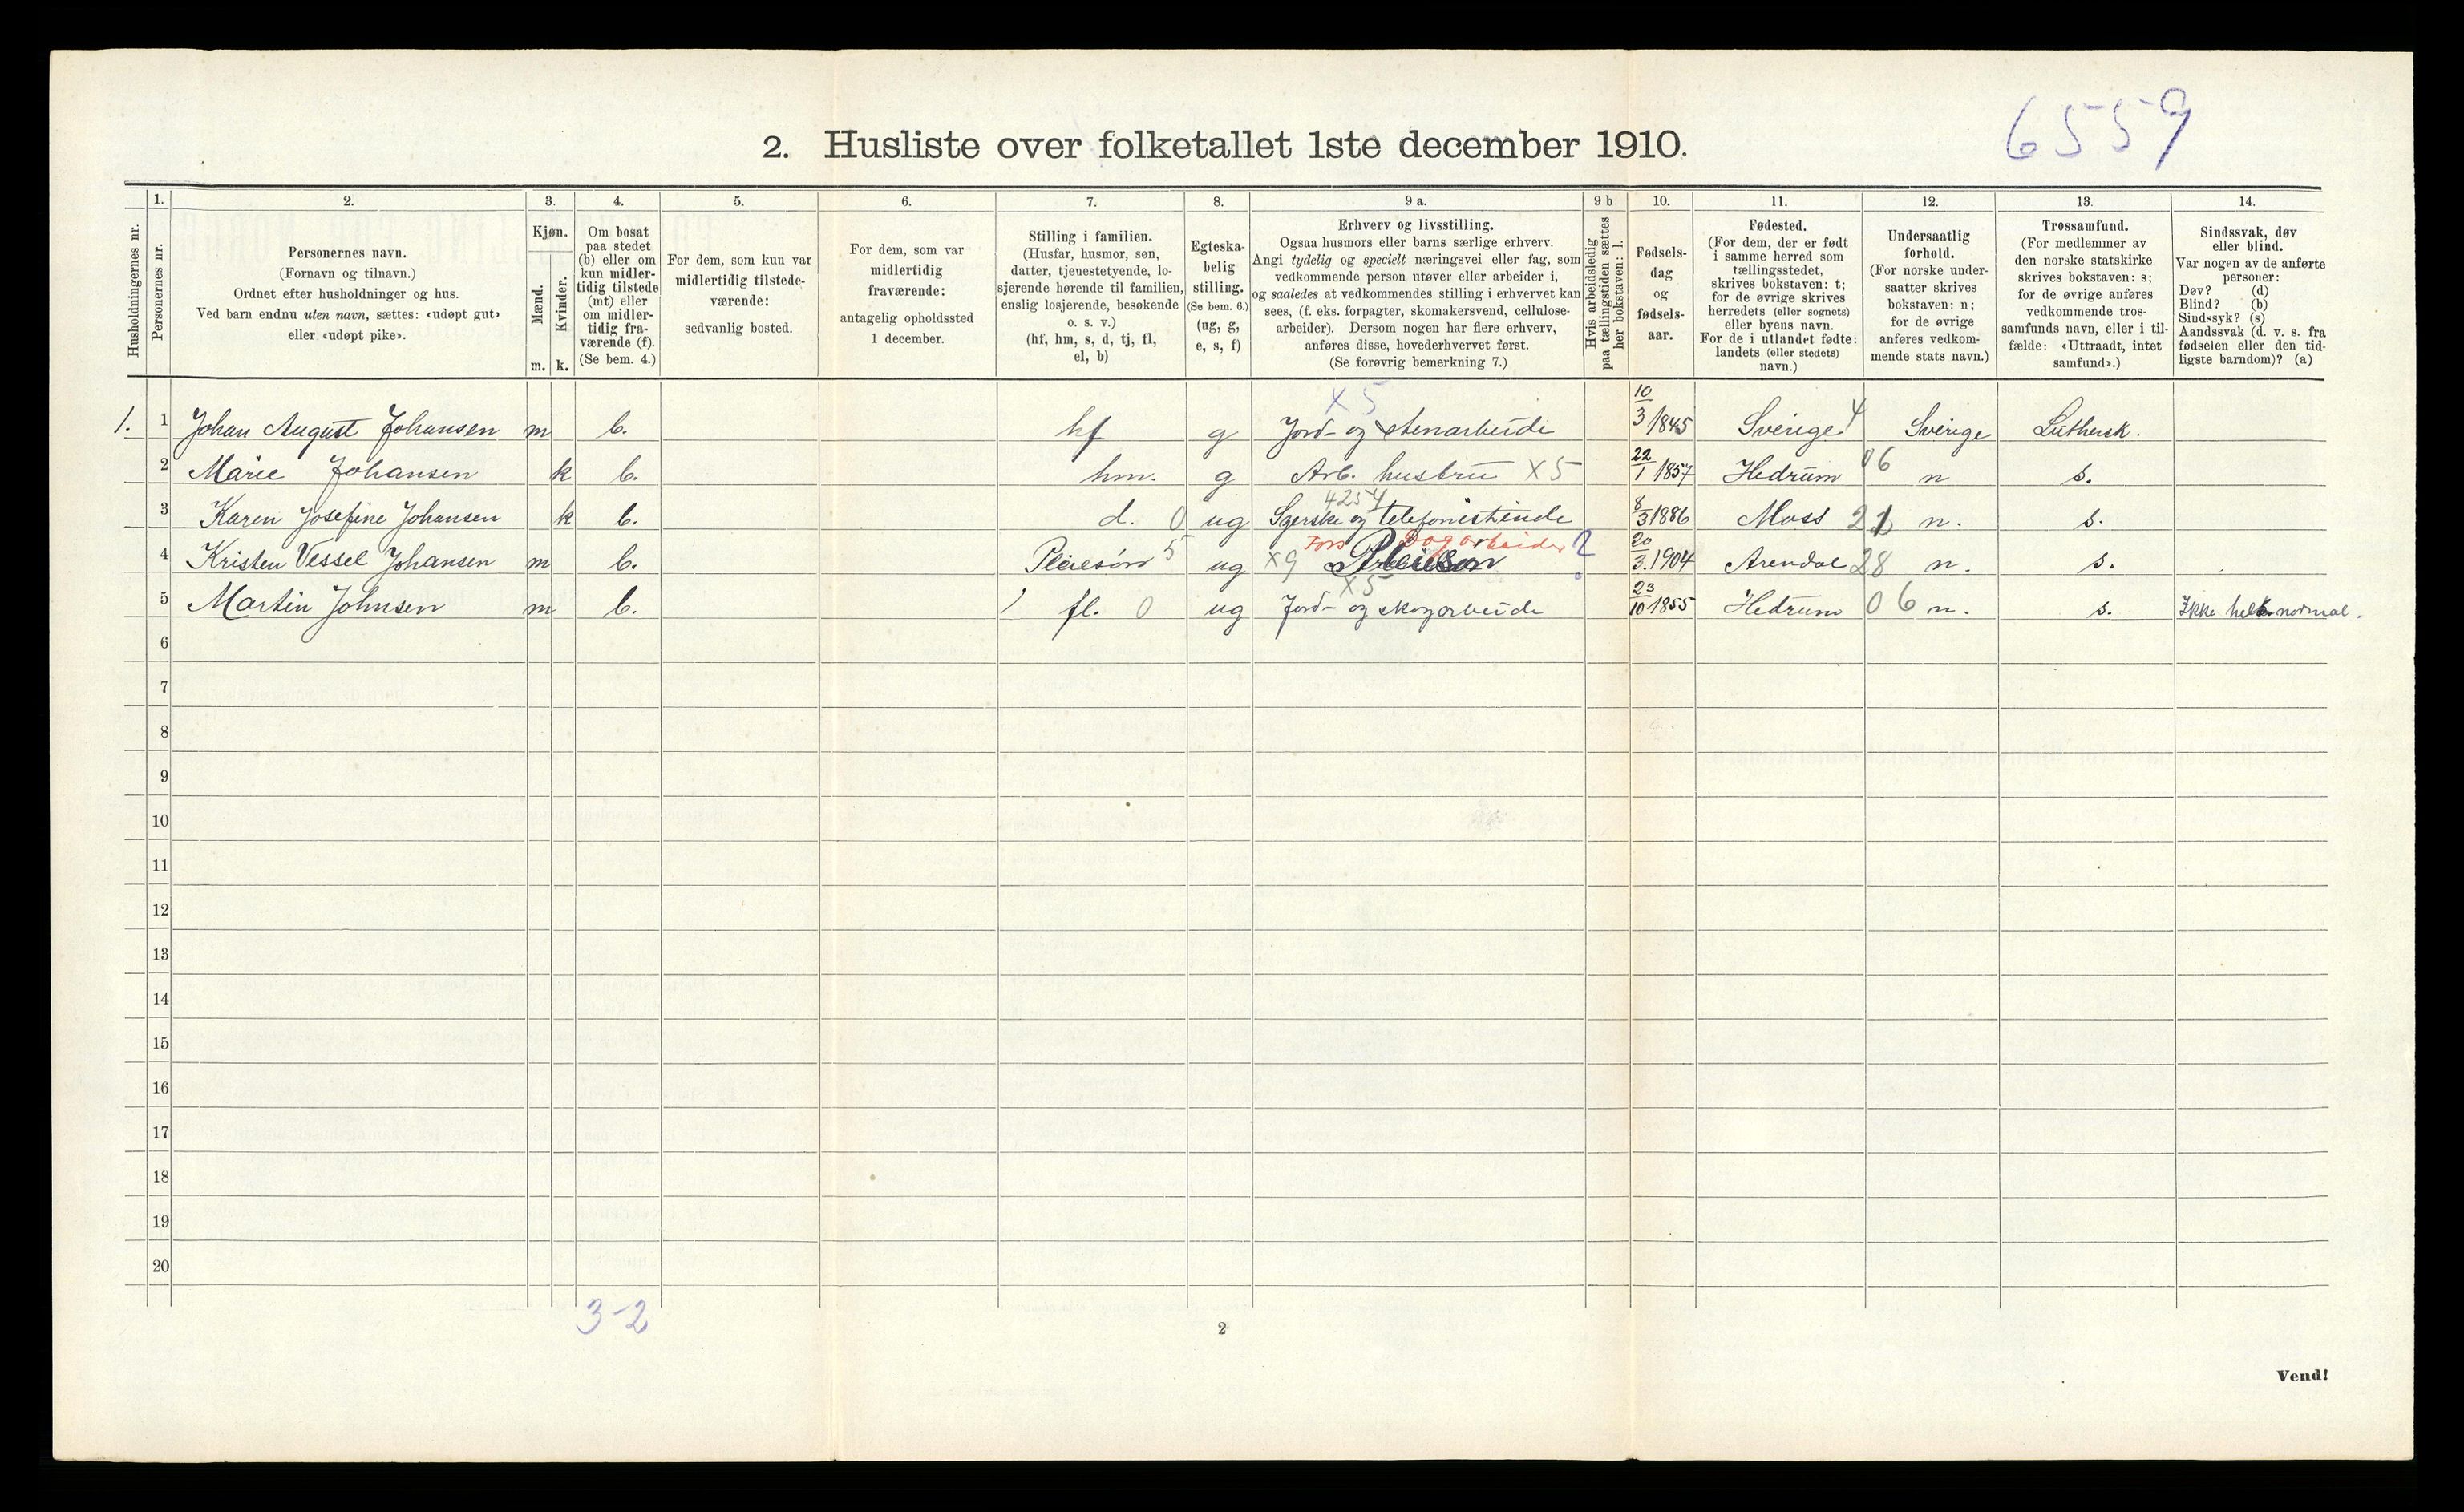 6559
2. Husliste over folketallet 1ste december 1910.
Husholdningernes nr.
1. Personernes nr.
2. Personernes navn.
(Fornavn og tilnavn.)
Ordnet efter husholdninger og hus.
Ved barn endnu uten navn, sættes: «udøpt gut»
eller «udøpt pike».
3. Kjøn.
Mænd. Kvinder.
m. k.
4. Om bosat
paa stedet
(b) eller om
kun midler-
tidig tilstede
(mt) eller
om midler-
tidig fra-
værende (f).
(Se bem. 4.)
5. For dem, som kun var
midlertidig tilstede-
værende:
sedvanlig bosted.
6. For dem, som var
midlertidig
fraværende:
antagelig opholdssted
1 december.
7. Stilling i familien.
(Husfar, husmor, søn,
datter, tjenestetyende, lo-
sjerende hørende til familien,
enslig losjerende, besøkende
o. s. v.)
(hf, hm, s, d, tj, fl,
el, b)
8. Egteska-
belig
stilling.
(Se bem. 6.)
(ug, g,
e, s, f)
9 a. Erhverv og livsstilling.
Ogsaa husmors eller barns særlige erhverv.
Angi tydelig og specielt næringsvei eller fag, som
vedkommende person utøver eller arbeider i,
og saaledes at vedkommendes stilling i erhvervet kan
sees, (f. eks. forpagter, skomakersvend, cellulose-
arbeider). Dersom nogen har flere erhverv,
anføres disse, hovederhvervet først.
(Se forøvrig bemerkning 7.)
9 b Hvis arbeidsledig
paa tællingstiden sættes
her bokstaven: l.
10. Fødsels-
dag
og
fødsels-
aar.
11. Fødested.
(For dem, der er født
i samme herred som
tællingsstedet,
skrives bokstaven: t;
for de øvrige skrives
herredets (eller sognets)
eller byens navn.
For de i utlandet fødte:
landets (eller stedets)
navn.)
12. Undersaatlig
forhold.
(For norske under-
saatter skrives
bokstaven: n;
for de øvrige
anføres vedkom-
mende stats navn.)
13. Trossamfund.
(For medlemmer av
den norske statskirke
skrives bokstaven: s;
for de øvrige anføres
vedkommende tros-
samfunds navn, eller i til-
fælde: «Uttraadt, intet
samfund».)
14. Sindssvak, døv
eller blind.
Var nogen av de anførte
personer:
Døv? (d)
Blind? (b)
Sindssyk? (s)
Aandssvak (d. v. s. fra
fødselen eller den tid-
ligste barndom)? (a)
X 5
1. 1 Johan August Johansen m b. hf g Jord- og stenarbeide 10/3 1845 Sverige 4 Sverige Luthersk.
2 Marie Johansen k b. hm. g Arb. hustru X5 22/1 1857 Hedrum 06 n s.
4254
3 Karen Josefine Johansen k b. d. 0 ug Syerske og telefonistinde 8/3 1886 Moss 21 n. s.
Fors Dagarbeider ?
4 Kristen Vessel Johansen m b. Pleiesøn 5 ug X9 Pleiesøn 20/3. 1904 Arendal 28 n. s.
X5
5 Martin Johnsen m b. fl. 0 ug Jord- og skogarbeide 23/10 1855 Hedrum 06 n. s. Ikke helt normal.
6
7
8
9
10
11
12
13
14
15
16
17
18
19
20
3-2
2
Vend!